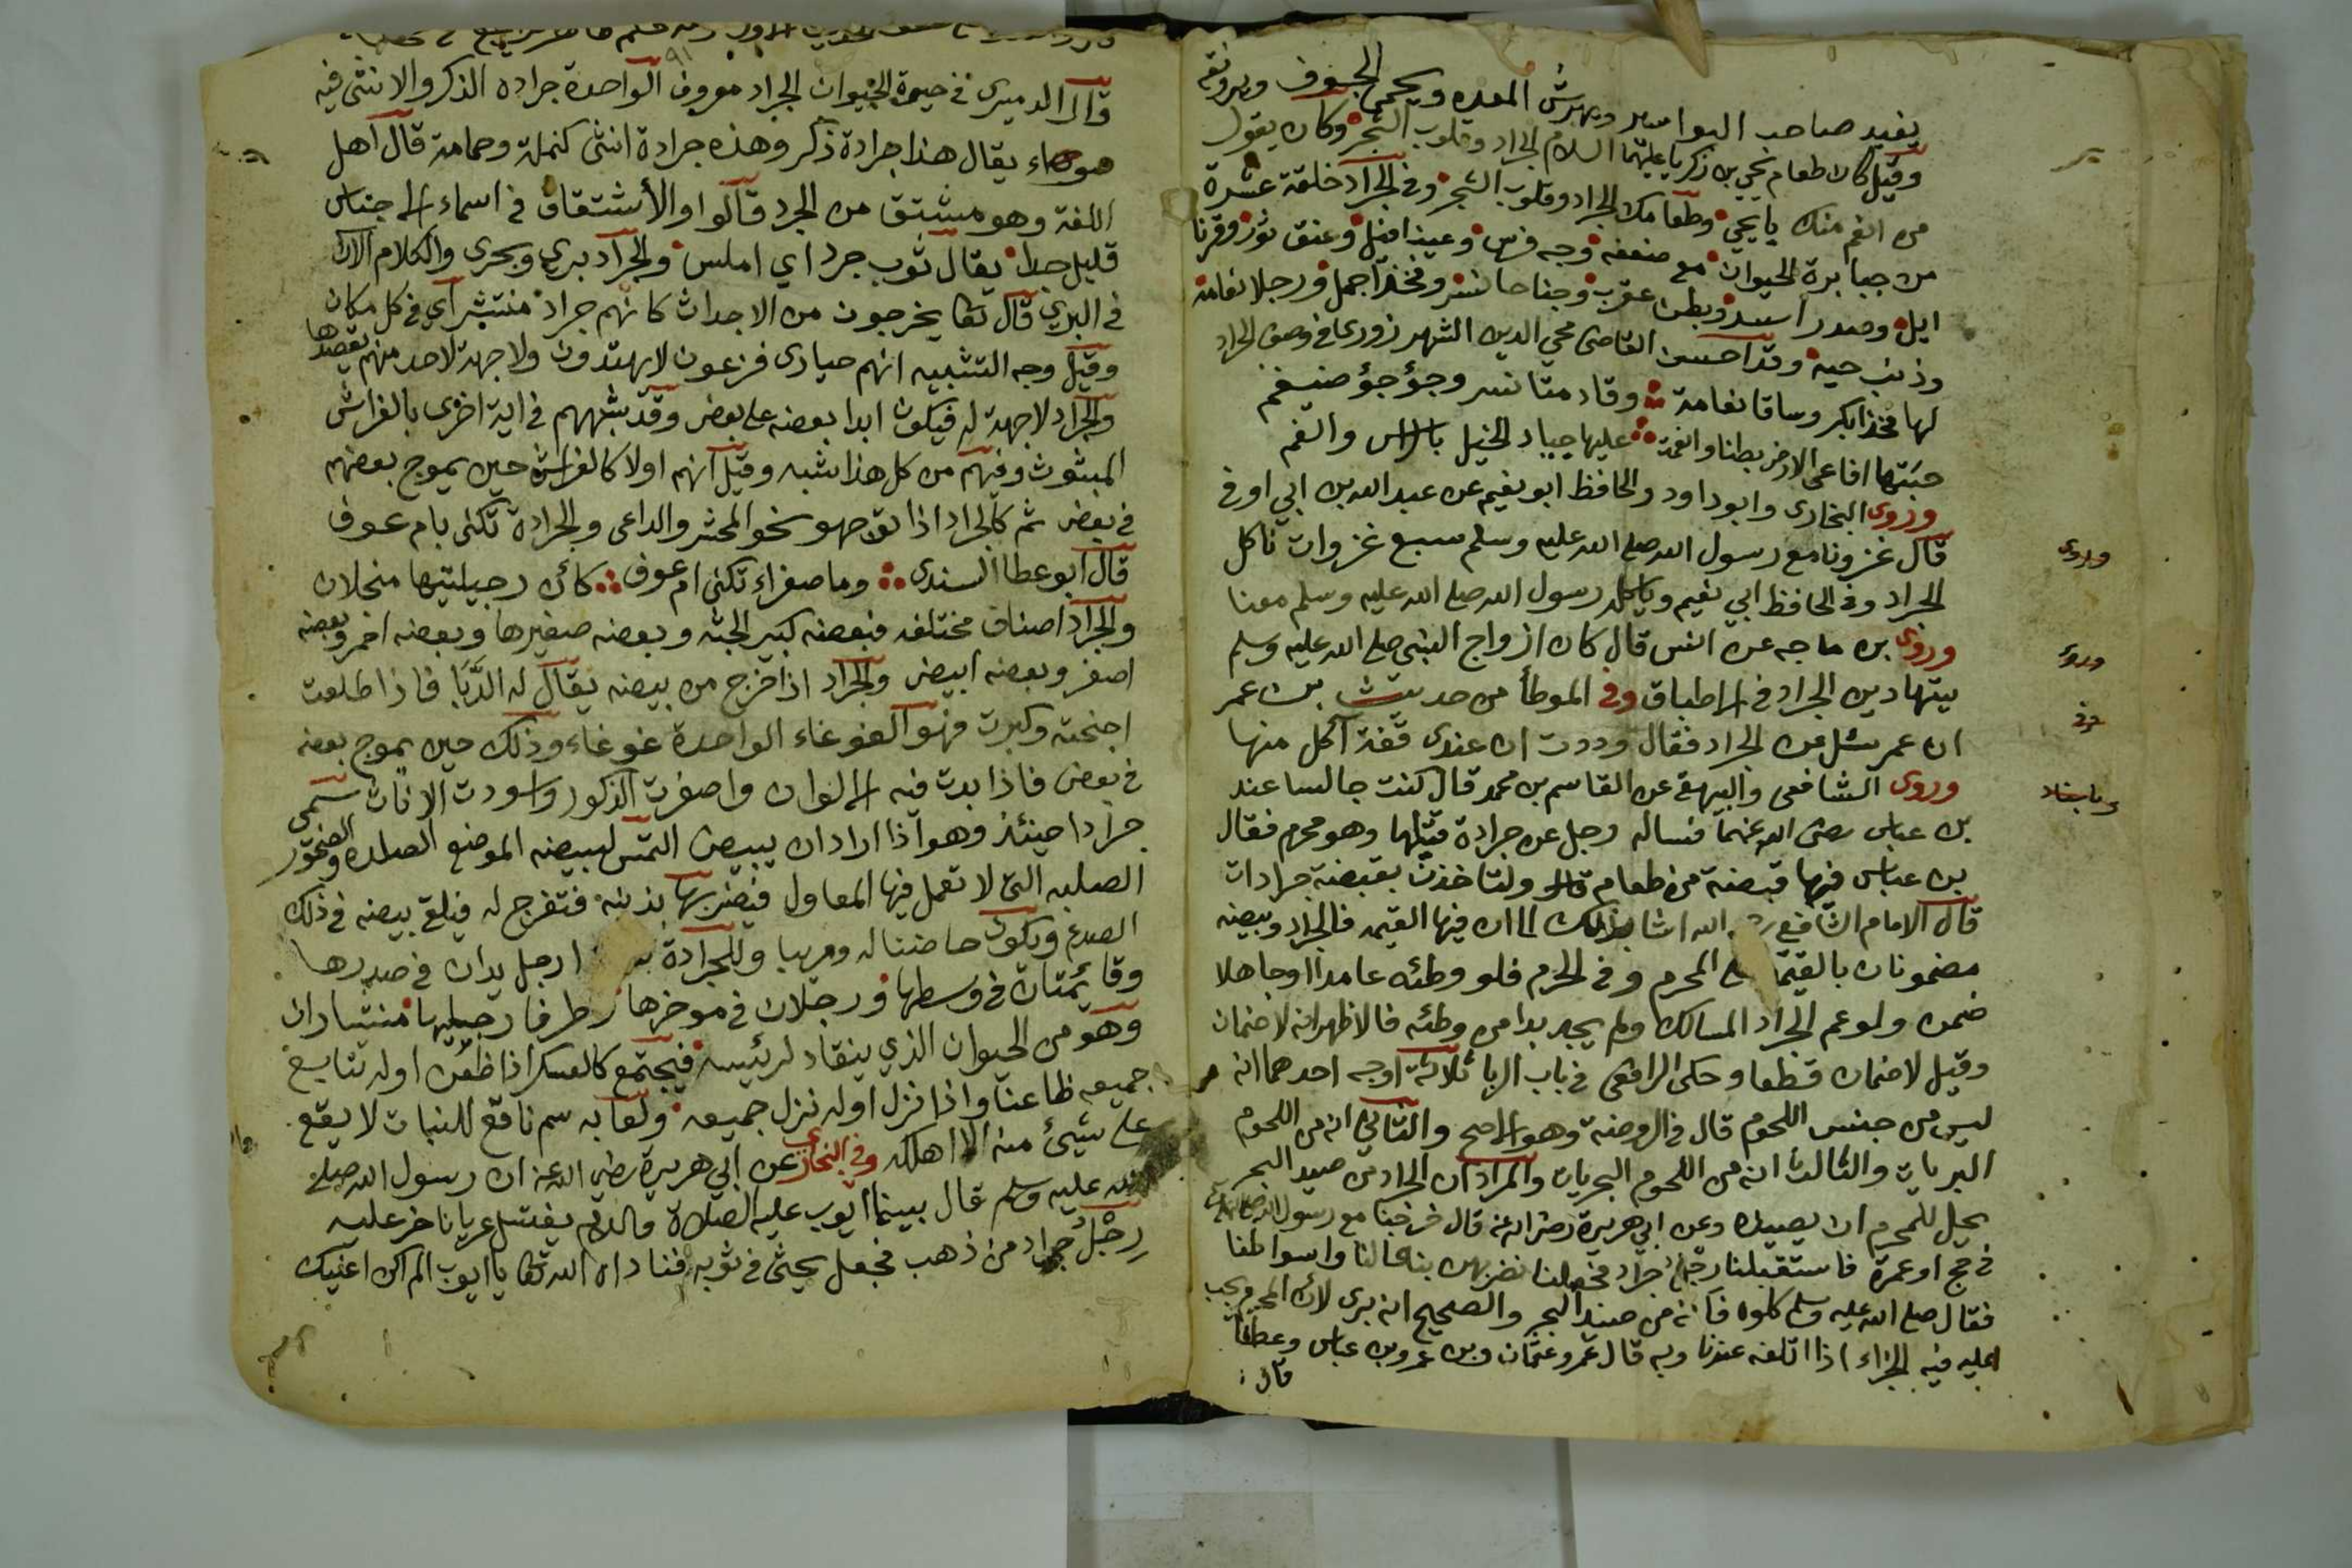 يفيد صاحب البواسير ويهرش المعده ويحمى الجوف ويروقه
وقيل كان طعام يحيى بن زكريا عليهما السلام الجراد وقلوب الشجر وكان يقول
من انعم منك يا يحيى وطعامك الجراد وقلوب الشجر وفى الجراد خلقة عشرة
من جبابرة الحيوان مع ضعفه وجه فرس وعينا فيل وعنق ثور وقرنا
ايل وصدر اسد وبطن عقرب وجناحا نسر وفخذا جمل ورجلا نعامة
وذنب حية وقد احسن القاضى محي الدين الشهرزورى فى وصف الجراد
لها فخذا بكر وساقا نعامة وقادمتا نسر وجؤجؤ ضيغم
حبتها افاعى الارض بطنا وانعمت عليها جياد الخيل بالراس والفم
وروى البخارى وابو داود والحافظ ابو نعيم عن عبد الله بن ابي اوفى
قال غزونا مع رسول الله صلى الله عليه وسلم سبع غزوات ناكل
الجراد وفى الحافظ ابي نعيم وياكله رسول الله صلى الله عليه وسلم معنا
وروى بن ماجه عن انس قال كان ازواج النبى صلى الله عليه وسلم
يتهادين الجراد فى الاطباق وفى الموطأ من حديث بن عمر
ان عمر سئل عن الجراد فقال وددت ان عندى قفة آكل منها
وروى الشافعى والبيهقى عن القاسم بن محمد قال كنت جالسا عند
بن عباس رضى الله عنهما فساله رجل عن جرادة قتلها وهو محرم فقال
بن عباس فيها قبضة من طعام ولتاخذن بقبضة جرادات
قال الامام الشافعى الله اشار بذلك الى ان فيها القيمه فالجراد وبيضه
مضمونان بالقيمة المحرم وفى الحرم فلو وطئه عامدا او جاهلا
ضمن ولو عم الجراد المسالك ولم يجد بدا من وطئه فالاظهر انه لا ضمان
وقيل لا ضمان قطعا وحكى الرافعى فى باب الربا ثلاثة اوجه احدهما انه
ليس من جنس اللحوم قال فى الروضة وهو الاصح والثاني انه من اللحوم
البريات والثالث انه من اللحوم البحريات والمراد ان الجراد من صيد البحر
يحل للمحرم ان يصيده وعن ابي هريرة رضى الله عنه قال خرجنا مع رسول الله صلى الله عليه
فى حج او عمرة فاستقبلنا رجل جراد فجعلنا نضربهن بنعالنا واسواطنا
فقال صلى الله عليه وسلم كلوه فانه من صيد البحر والصحيح انه برى لان المحرم يجب
عليه فيه الجزاء اذا اتلفه عندنا وبه قال عمر وعثمان وبن عمر وبن عباس وعطا
قال
وروى
وروى
وفى
وباسناد
٩١
قال الدميرى فى حيوة الحيوان الجراد معروف الواحدة جراده الذكر والانثى فيه
سواء يقال هذا جرادة ذكر وهذه جرادة انثى كنملة وحمامة قال اهل
اللغة وهو مشتق من الجرد قالوا والأشتقاق فى اسماء الاجناس
قليل جدا يقال ثوب جرد اي املس والجراد بري وبحرى والكلام الان
فى البري قال تعا يخرجون من الاجداث كانهم جراد منتشر اي فى كل مكان
وقيل وجه التشبيه انهم حيارى فزعون لا يهتدون ولا جهة لاحد منهم يقصدها
والجراد لا جهة له فيكون ابدا بعضه على بعض وقد شبههم فى اية اخرى بالفراش
المبثوث وفيهم من كل هذا شبه وقيل انهم اولا كالفراش حين يموج بعضهم
فى بعض ثم كالجراد اذا توجهو نحو المحشر والداعى والجرادة تكنى بام عوف
قال ابو عطا السندى وما صفراء تكنى ام عوف كأن رجيلتيها منجلان
والجراد اصناف مختلفه فبعضه كبير الجثه وبعضه صغيرها وبعضه احمر وبعضه
اصفر وبعضه ابيض والجراد اذا خرج من بيضه يقال له الدَّبَا فاذا طلعت
اجنحته وكبرت فهو الغوغاء الواحدة غوغاء وذلك حين يموج بعضه
فى بعض فاذا بدت فيه الالوان واصفرت الذكور واسودت الاناث سمى
جرادا حينئذ وهو اذا اراد ان يبيض التمس لبيضه الموضع الصلده والصخور
الصلبه التى لا تعمل فيها المعاول فيضربها بذنبه فتفرج له فيلقى بيضه فى ذلك
الصدع ويكون حاضنا له ومربيا وللجرادة ارجل يدان فى صدرها
وقائمتان فى وسطها ورجلان فى موخرها وطرفا رجليها منشاران
وهو من الحيوان الذي ينقاد لرئيسه فيجتمع كالعسكر اذا ظعن اوله تتابع
جميعه ظاعنا واذا نزل اوله نزل جميعه ولعابه سم ناقع للنبات لا يقع
على شيئ منه الا اهلكه وفى البخارى عن ابي هريرة رضى الله عنه ان رسول الله صلى
الله عليه وسلم قال بينما ايوب عليه الصلاة والسلام يغتسل عريانا خر عليه
رِجْلُ جراد من ذهب فجعل يحثى فى ثوبه فناداه الله تعا يا ايوب الم اكن اغنيك